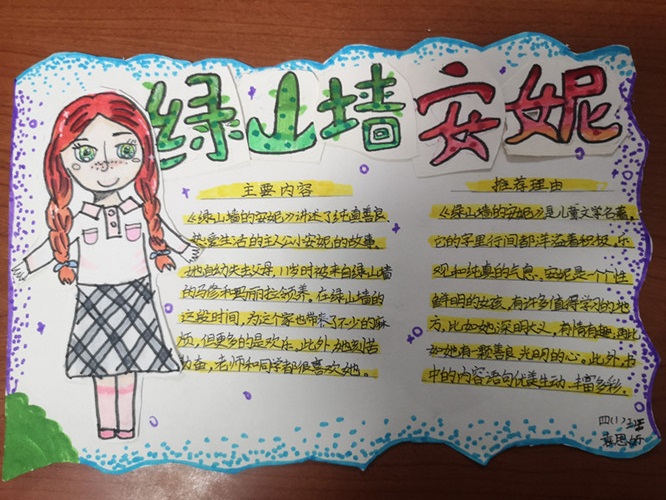 绿山墙安妮
主要内容
《绿山墙的安妮》讲述了纯真善良、
热爱生活的主人公小安妮的故事。
她自幼失去父母，11岁时被来自绿山墙
的马修和玛丽拉领养，在绿山墙的
这段时间，为这个家也带来了不少的麻
烦，但更多的是欢庄。此外，她刻苦
勤奋，老师和同学都很喜欢她。
推荐理由
《绿山墙的安妮》是儿童文学名著，
它的字里行间都洋溢着积极、乐
观和纯真的气息。安妮是一个个性
鲜明的女孩，有许多值得学习的地
方，比如她深明大义，有情有趣，
如她有一颗善良、光明的心。此外，书
中的内容语句优美生动、丰富多彩。
四(1)班
袁思娇